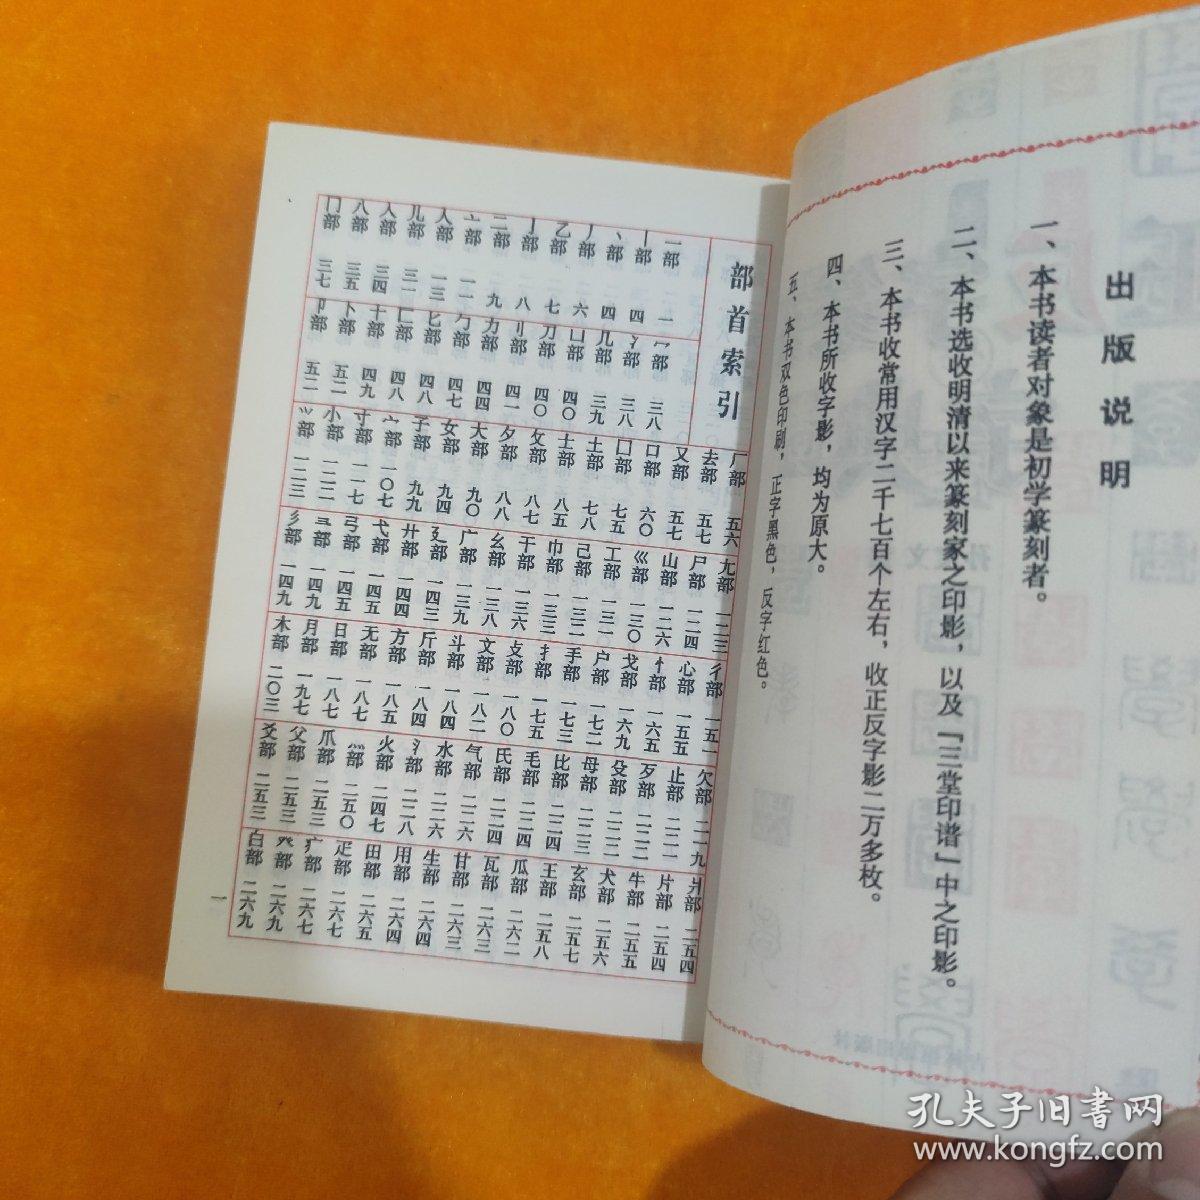 出版说明
一、本书读者对象是初学篆刻者。
二、本书选收明清以来篆刻家之印影，以及「三堂印谱」中之印影。
三、本书收常用汉字二千七百个左右，收正反字影二万多枚。
四、本书所收字影，均为原大。
五、本书双色印刷，正字黑色，反字红色。
部首索引
一部 一
丨部 四
、部 四
丿部 六
乙部 七
亅部 八
二部 九
亠部 一一
人部 一三
儿部 三一
入部 三四
八部 三五
冂部 三七
冖部 三八
冫部 三八
几部 三九
凵部 四〇
刀部 四〇
刂部 四一
力部 四四
勹部 四七
匕部 四八
匚部 四八
十部 四九
卜部 五二
卩部 五二
厂部 五六
去部 五七
又部 五七
口部 六〇
囗部 七五
土部 七八
士部 八五
夂部 八七
夕部 八八
大部 九〇
女部 九四
子部 九九
宀部 一〇七
寸部 一一七
小部 一二二
⺌部 一二三
尢部 一二三
尸部 一二四
山部 一二六
巛部 一三〇
工部 一三一
己部 一三二
巾部 一三三
干部 一三六
幺部 一三八
广部 一三九
廴部 一四三
廾部 一四四
弋部 一四五
弓部 一四五
彐部 一四九
彡部 一四九
彳部 一五一
心部 一五五
忄部 一六五
戈部 一六九
户部 一七二
手部 一七三
扌部 一七五
攴部 一八〇
文部 一八二
斗部 一八四
斤部 一八四
方部 一八五
无部 一八七
日部 一八七
月部 一九七
木部 二〇三
欠部 二一九
止部 二二一
歹部 二二二
殳部 二二二
母部 二二三
比部 二二四
毛部 二二四
氏部 二二四
气部 二二六
水部 二二六
氵部 二二八
火部 二四七
灬部 二五〇
爪部 二五三
父部 二五三
爻部 二五三
爿部 二五四
片部 二五四
牛部 二五五
犬部 二五六
玄部 二五七
王部 二五八
瓜部 二六二
瓦部 二六三
甘部 二六三
生部 二六四
用部 二六四
田部 二六五
疋部 二六七
疒部 二六七
癶部 二六九
白部 二六九
一
孔夫子旧书网
www.kongfz.com